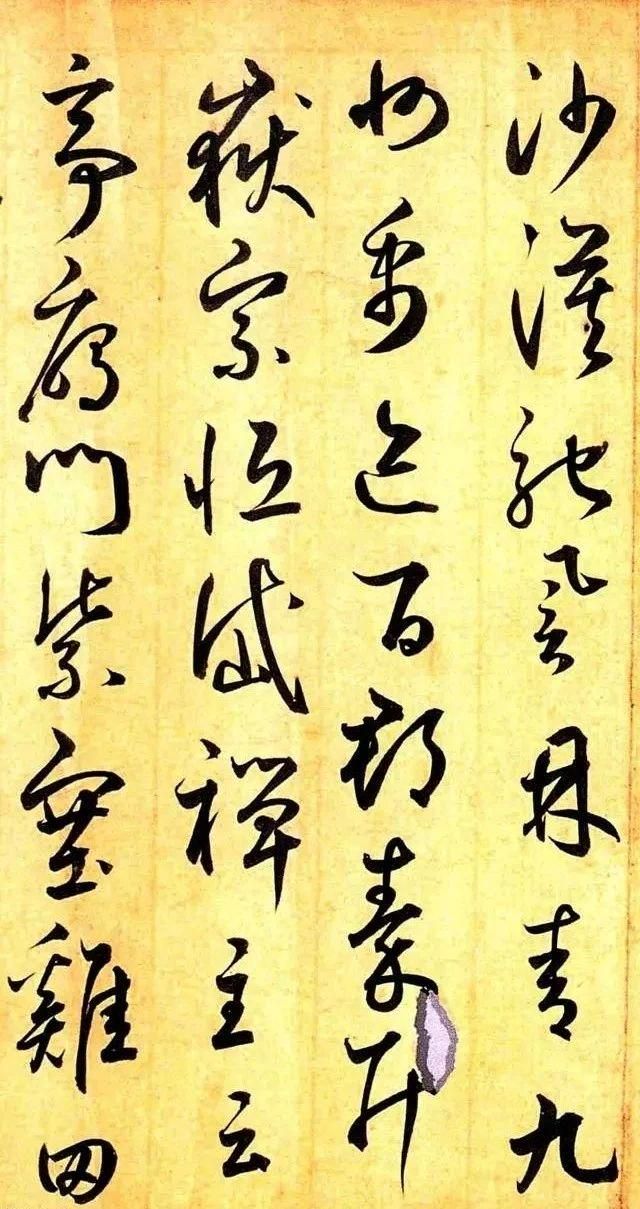 沙漠馳譽丹青九
州禹跡百郡秦并
嶽宗恒岱禪主云
亭雁門紫塞雞田